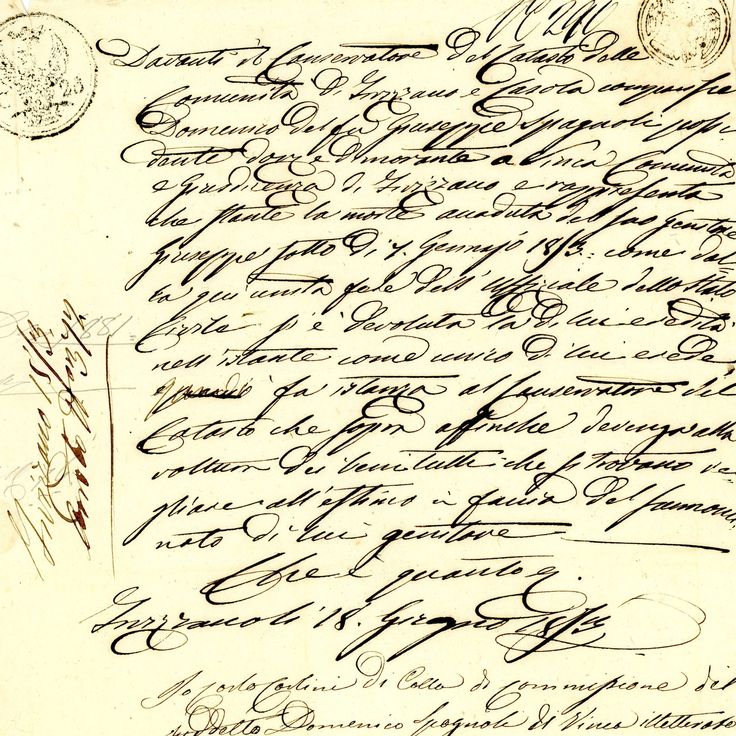 Davanti il Conservatore del Catasto delle
Comunità di Fivizzano e Casola comparisce
Domenico del fu Giuseppe Spagnoli possi
dente dom.to e dimorante a Vinca Comunità
e Giusdicenza di Fivizzano e rappresenta
che stante la morte accaduta del suo genitore
Giuseppe sotto dì 7. Gennajo come dal
la qui unita fede dell'Uffiziale dello Stato
Civile si è devoluta la di lui eredità
nell'istante come unico di lui erede
fa istanza al Conservatore del
Catasto che sopra affinchè devenga alla
voltura dei beni tutti che si trovano ve
gliare all'estimo in faccia del summen
nato di lui genitore
Che è quanto
Fivizzano li 18. Giugno
Io Carlo di Colla di commissione del
suddetto Domenico Spagnoli di Vinca illetterato
Fivizzano